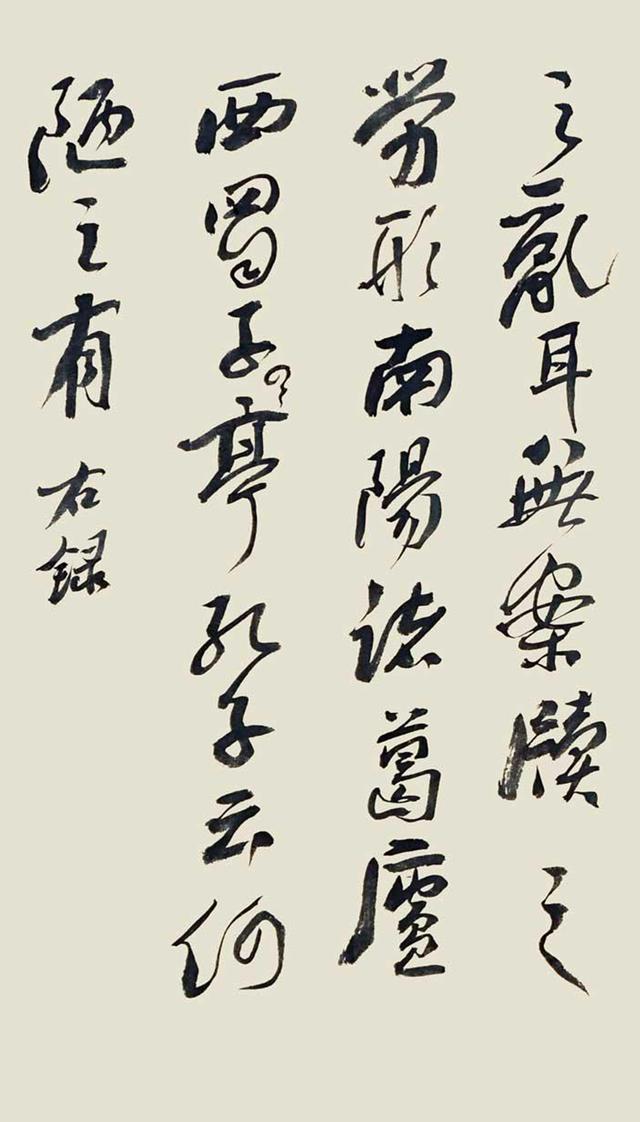 之亂耳無案牘之
勞形南陽諸葛廬
西蜀子亭孔子云何
陋之有 右録